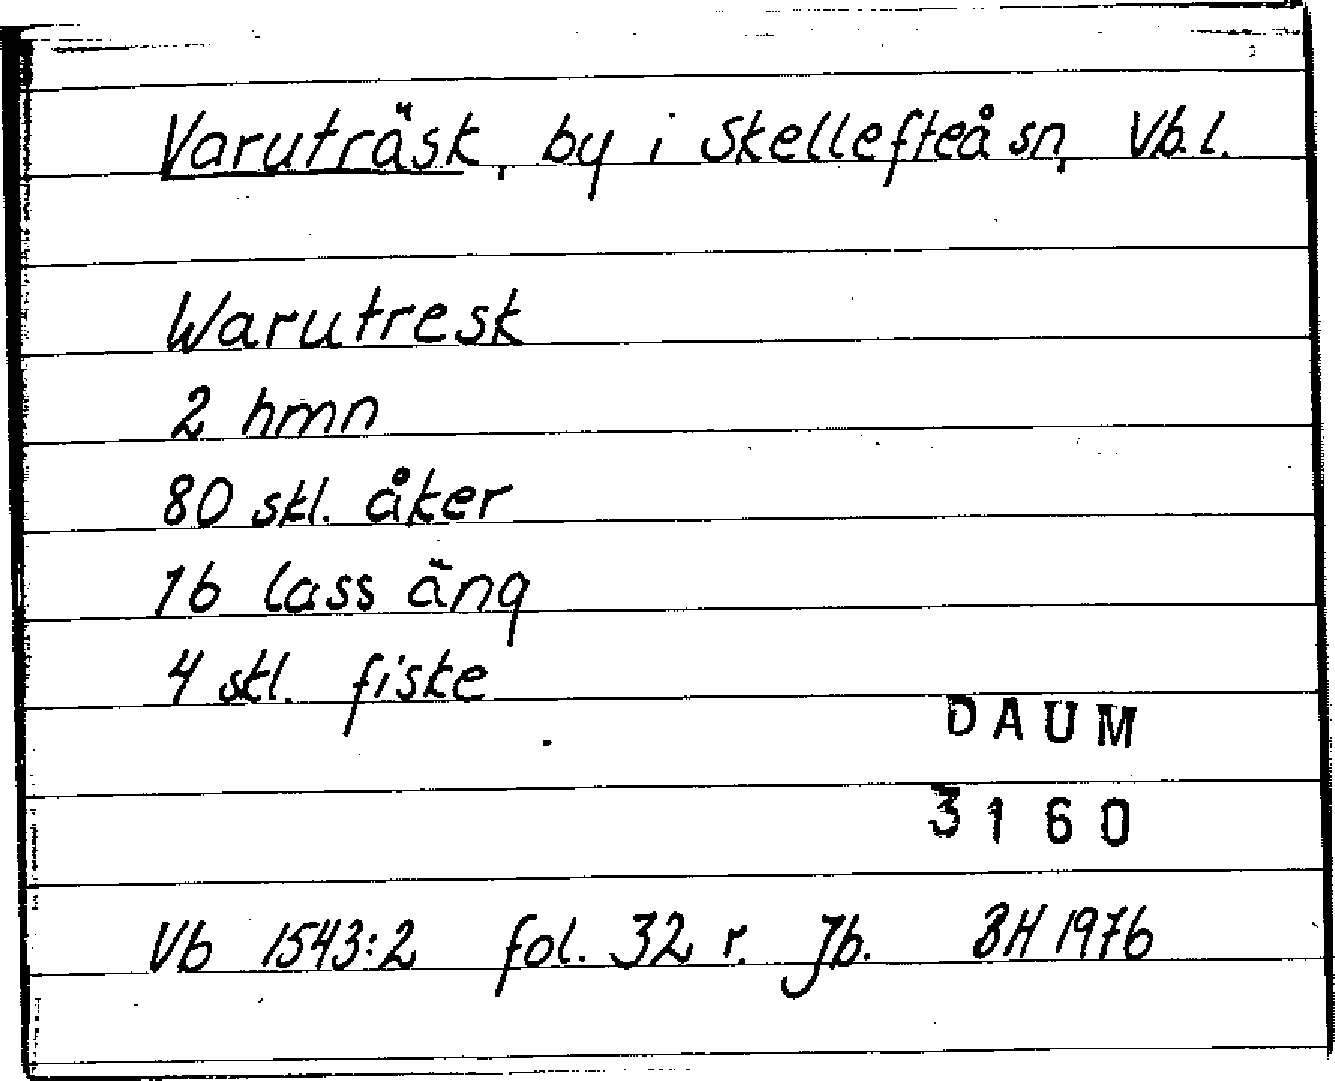 Varuträsk, by i Skellefteå sn, Vb.l.
Warutresk
2 hmn
80 skl. åker
16 lass äng
4 skl. fiske
DAUM
3160
Vb 1543:2 fol. 32 r. Jb. BH 1976